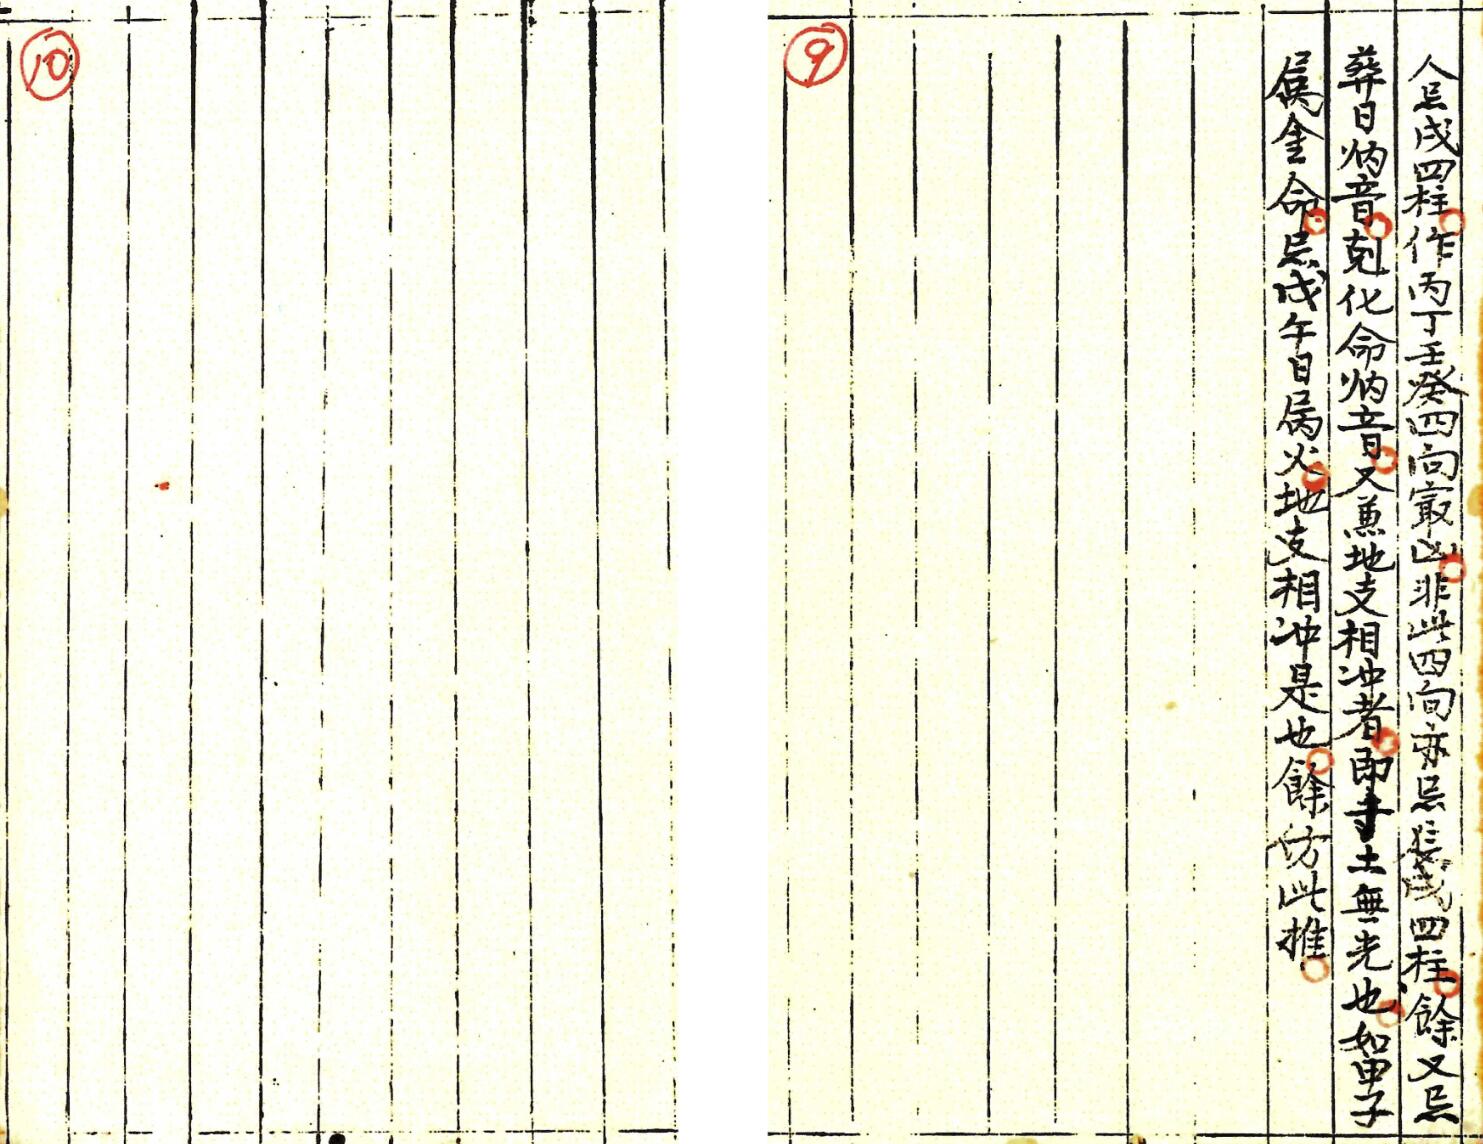 人忌戌四柱作丙丁壬癸四向最凶非此四向亦忌戌四柱餘又忌
葬日炳音剋化命炳音又兼地支相冲者即土無光也如甲子
属金命忌戊午日属火地支相冲是也餘仿此推
⑨
⑩